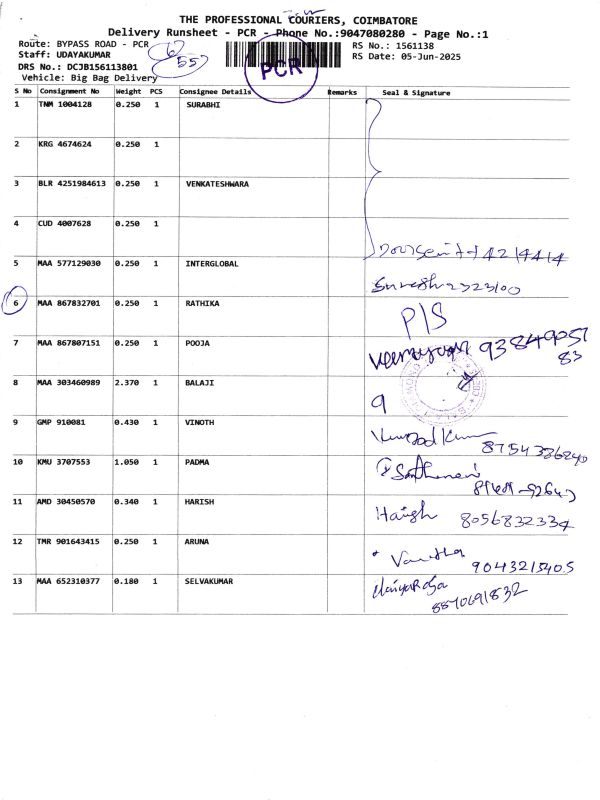 THE PROFESSIONAL COURIERS, COIMBATORE
Delivery Runsheet - PCR - Phone No.:9047080280 - Page No.:1
Route: BYPASS ROAD - PCR
RS No.: 1561138
Staff: UDAYAKUMAR
RS Date: 05-Jun-2025
DRS No.: DCJB156113801
Vehicle: Big Bag Delivery
6
557
PCR
S No Consignment No Weight PCS Consignee Details Remarks Seal & Signature
1 TNM 1004128 0.250 1 SURABHI
2 KRG 4674624 0.250 1
3 BLR 4251984613 0.250 1 VENKATESHWARA
4 CUD 4007628 0.250 1
4214414
5 MAA 577129030 0.250 1 INTERGLOBAL
Suresh 2323100
6 MAA 867832701 0.250 1 RATHIKA
P/S
7 MAA 867807151 0.250 1 POOJA
93849051
83
8 MAA 303460989 2.370 1 BALAJI
9
9 GMP 910081 0.430 1 VINOTH
8754386840
10 KMU 3707553 1.050 1 PADMA
11 AMD 30450570 0.340 1 HARISH
Harish 8056832334
12 TMR 901643415 0.250 1 ARUNA
Vanitha
9043215405
13 MAA 652310377 0.180 1 SELVAKUMAR
8870691832